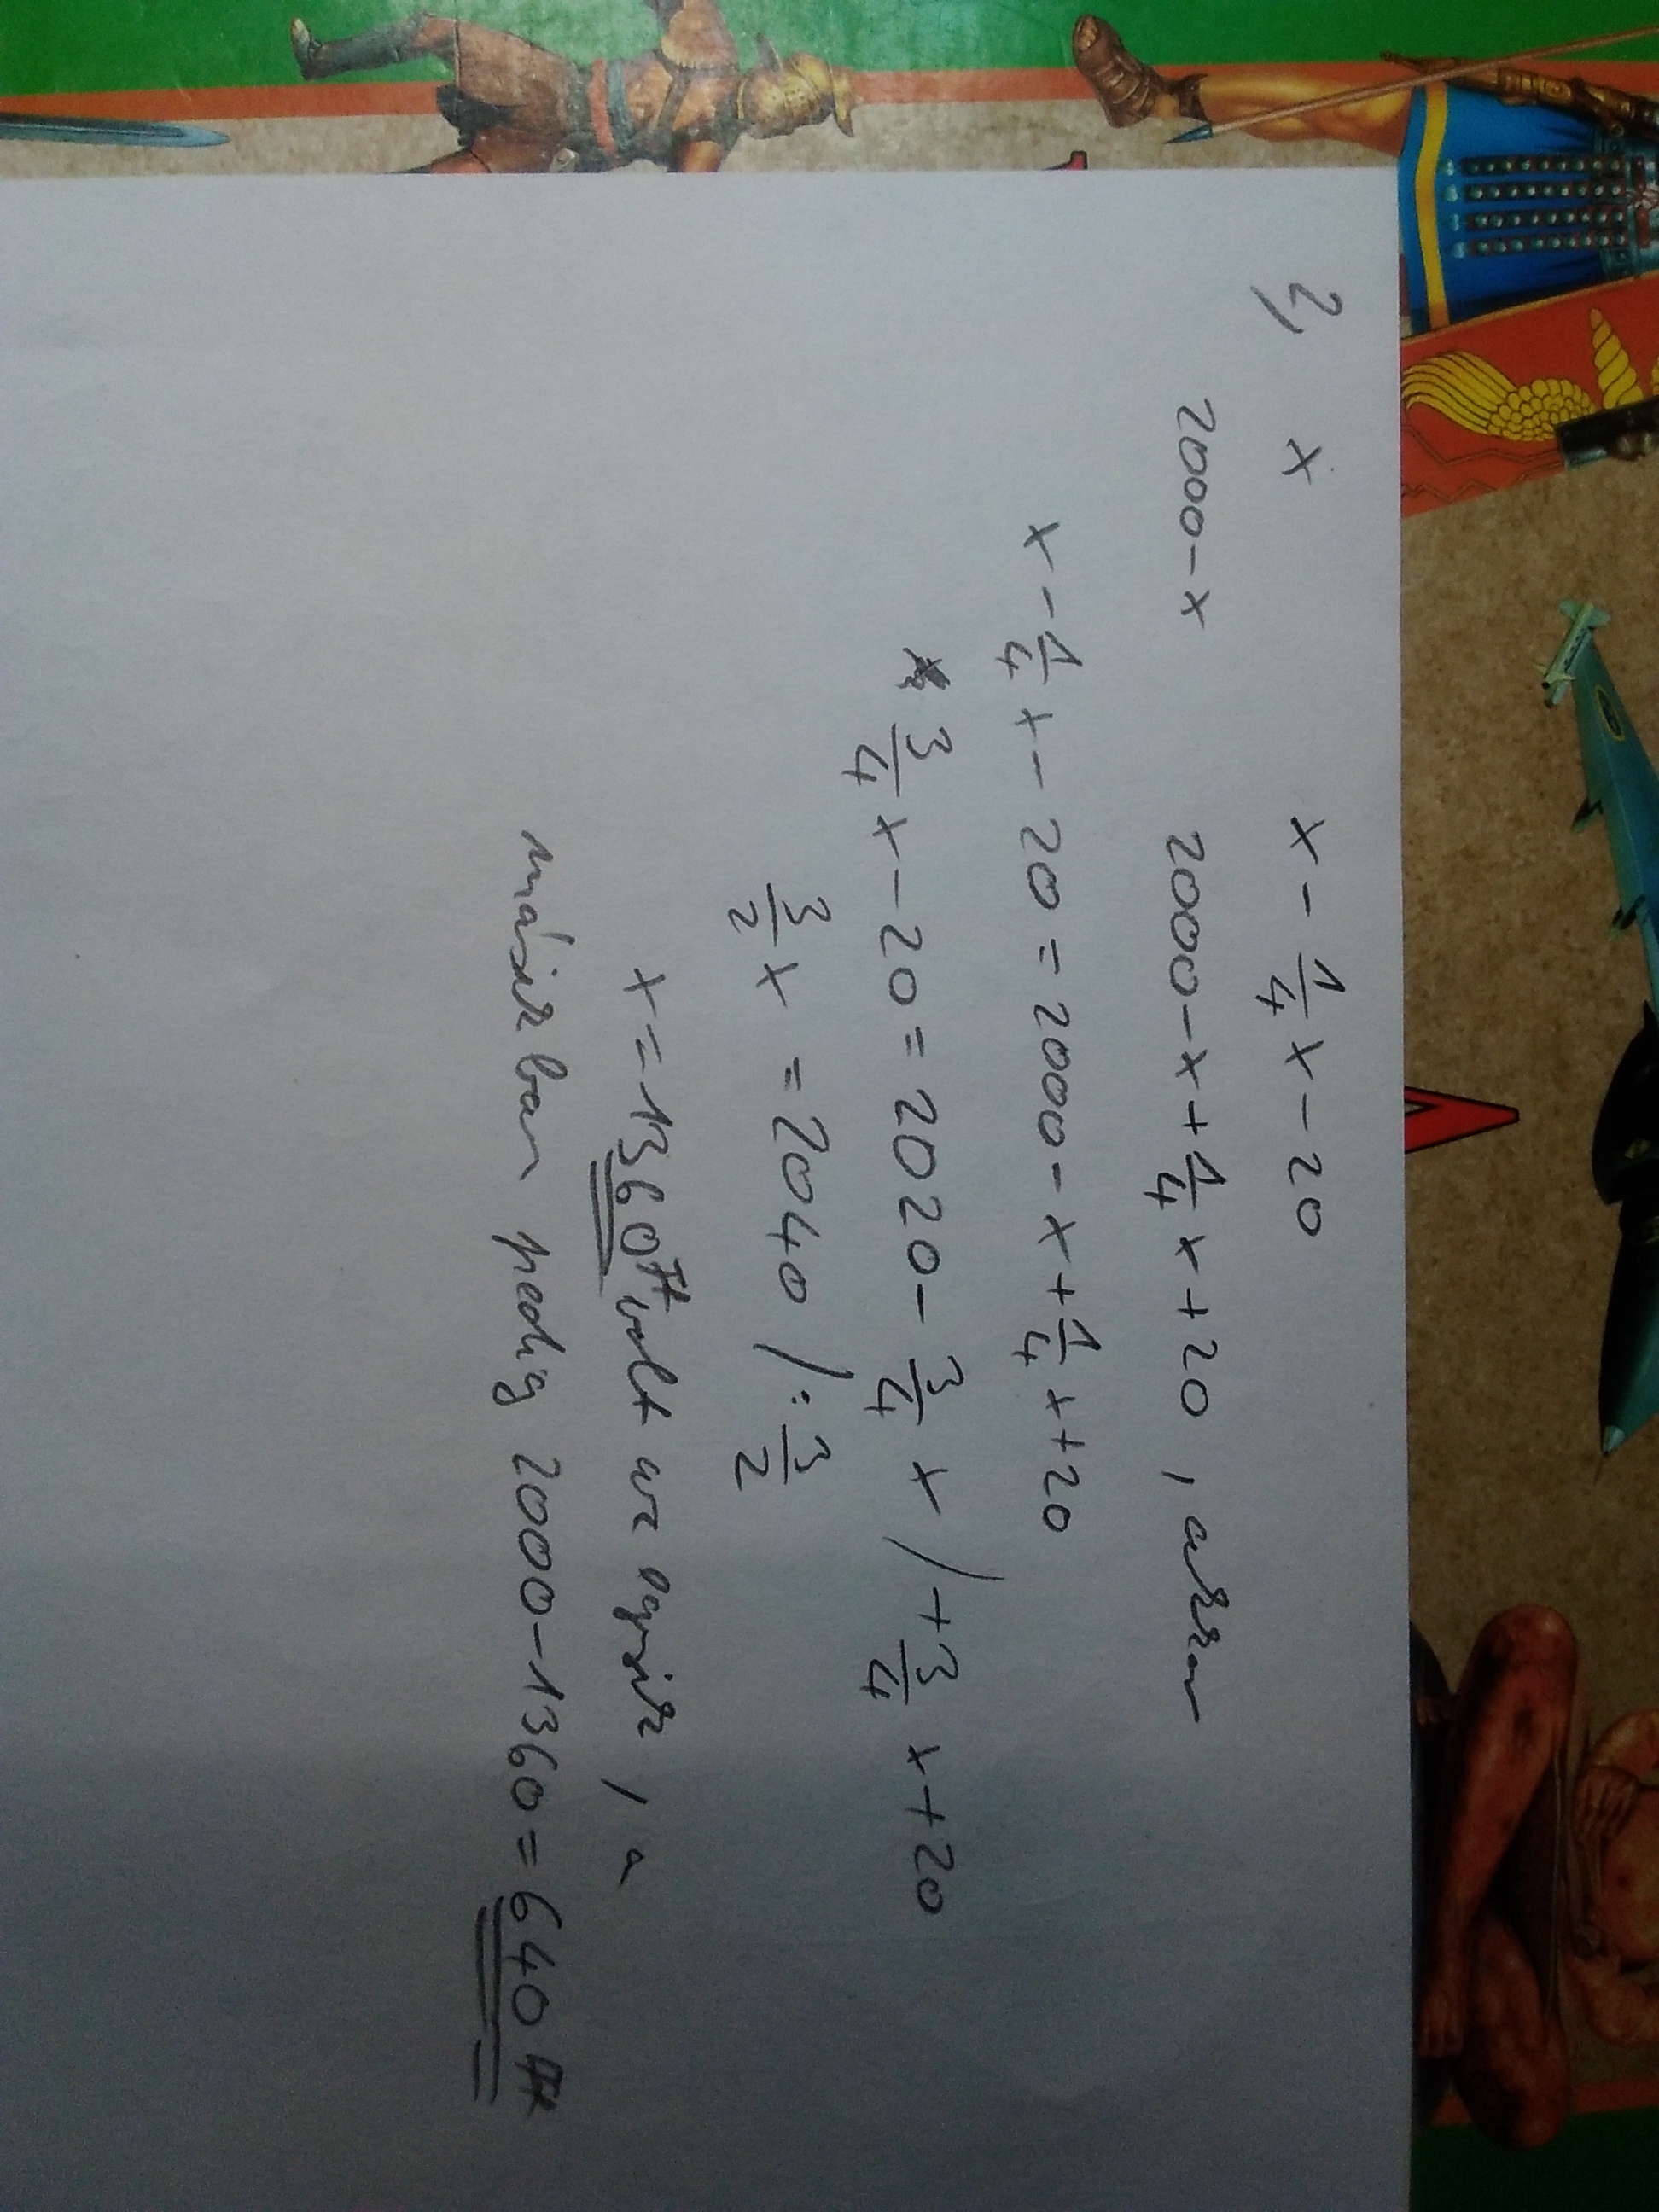 2, x x - 1/4 x - 20
2000 - x 2000 - x + 1/4 x + 20 , azaz
x - 1/4 x - 20 = 2000 - x + 1/4 x + 20
3/4 x - 20 = 2020 - 3/4 x / + 3/4 x + 20
3/2 x = 2040 / : 3/2
x = 1360 Ft volt az egyik , a
másikban pedig 2000 - 1360 = 640 Ft